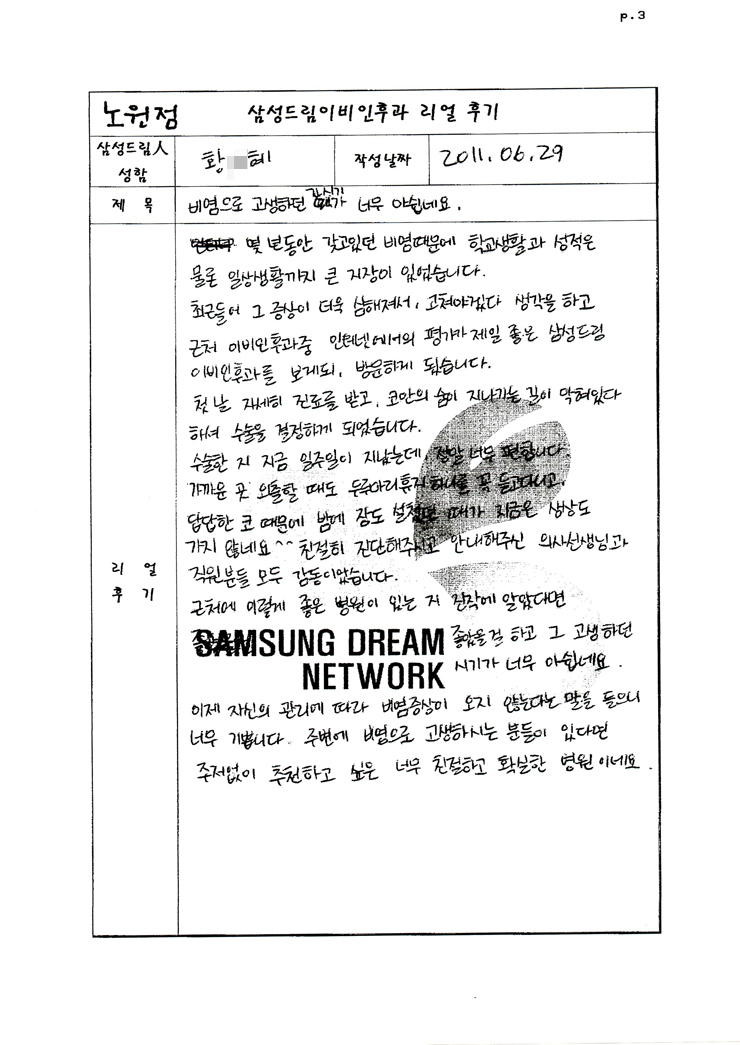 p.3
노원점 삼성드림이비인후과 리얼 후기
삼성드림人 성함
황 혜
작성날짜
2011.06.29
제 목
비염으로 고생하던 시기가 너무 아쉽네요.
리 얼
후 기
몇 년동안 갖고있던 비염때문에 학교생활과 성적은
물론 일상생활까지 큰 지장이 있었습니다.
최근들어 그 증상이 더욱 심해져서, 고쳐야겠다 생각을 하고
근처 이비인후과중 인터넷에어의 평가가 제일 좋은 삼성드림
이비인후과를 보게되, 방문하게 됬습니다.
첫 날 자세히 진료를 받고, 코안의 숨이 지나가는 길이 막혀있다
하셔 수술을 결정하게 되었습니다.
수술한 지 지금 일주일이 지났는데, 정말 너무 편합니다.
가까운 곳 외출할 때도 두루마리휴지 하나를 꼭 들고다니고,
답답한 코 때문에 밤에 잠도 설쳤던 때가 지금은 상상도
가지 않네요^^ 친절히 진단해주시고 안내해주신 의사선생님과
직원분들 모두 감동이었습니다.
근처에 이렇게 좋은 병원이 있는 지 진작에 알았다면
좋았을걸 하고 그 고생하던
시기가 너무 아쉽네요.
SAMSUNG DREAM
NETWORK
이제 자신의 관리에 따라 비염증상이 오지 않는다는 말을 들으니
너무 기쁩니다. 주변에 비염으로 고생하시는 분들이 있다면
주저없이 추천하고 싶은 너무 친절하고 확실한 병원이네요.